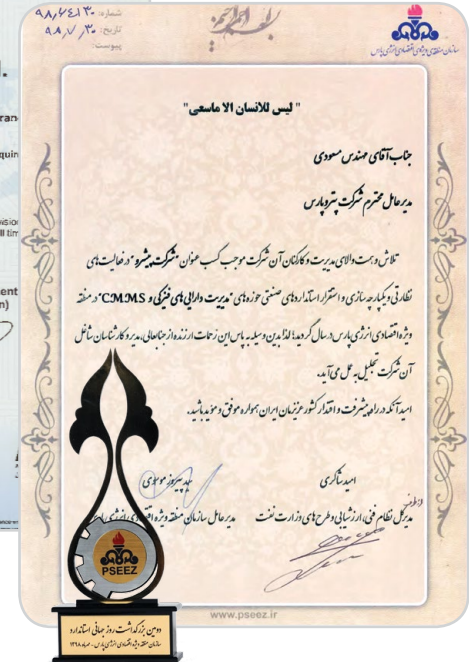 شماره:
تاریخ: ۹۸,۷,۳۰
پیوست:
سازمان منطقه‌ی ویژه‌ی اقتصادی انرژی پارس
" لیس للانسان الا ماسعی"
جناب آقای مهندس مسعودی
مدیرعامل محترم شرکت پتروپارس
تلاش و همت والای مدیریت و کارکنان آن شرکت موجب کسب عنوان "شرکت پیشرو" در فعالیت های
نظارتی و یکپارچه سازی و استقرار استانداردهای صنعتی حوزه های "مدیریت دارایی های فیزیکی و C.M.M.S" در منطقه
ویژه اقتصادی انرژی پارس در سال گردید، لذا بدین وسیله به پاس این زحمات ارزنده از جنابعالی، مدیر و کارشناسان شاغل
آن شرکت تجلیل به عمل می آید.
امید آنکه در راه پیشرفت و اقتدار کشور عزیزمان ایران همواره موفق و مؤید باشید.
امید شاکری
مدیرکل نظام فنی، ارزشیابی و طرح های وزارت نفت
سید پیروز موسوی
مدیرعامل سازمان منطقه ویژه اقتصادی انرژی پارس
PSEEZ
دومین بزرگداشت روز جهانی استاندارد
سازمان منطقه ویژه اقتصادی انرژی پارس - مهرماه ۱۳۹۸
www.pseez.ir